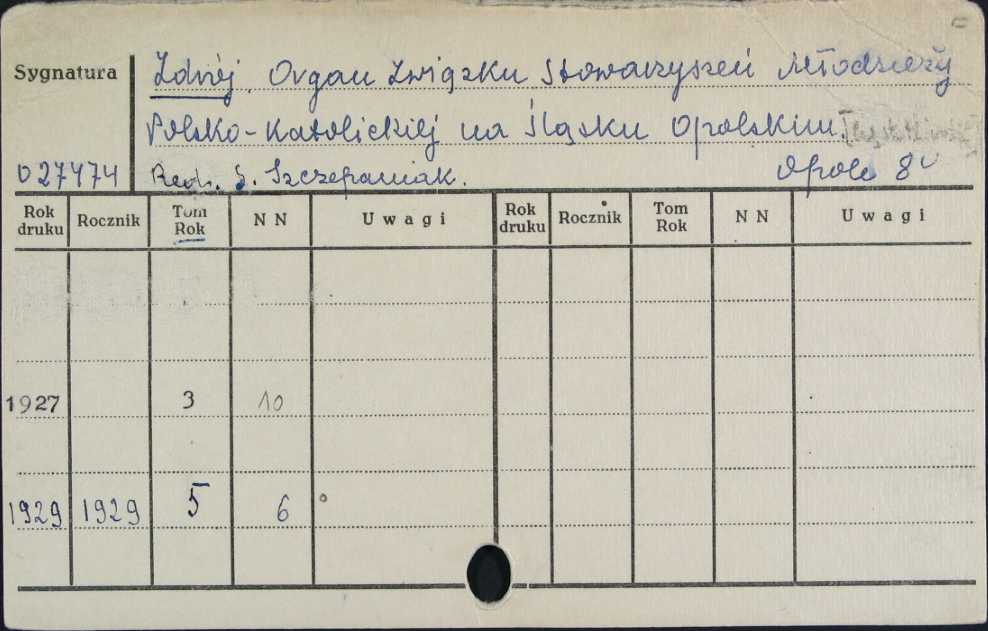 Sygnatura
Zdrój. Organ Związku Stowarzyszeń Młodzieży
Polsko-Katolickiej na Śląsku Opolskim.
027474 Red. S. Szczepaniak. Opole 8°
Rok druku Rocznik Tom Rok N N Uwagi Rok druku Rocznik Tom Rok N N Uwagi
1927 3 10
1929 1929 5 6